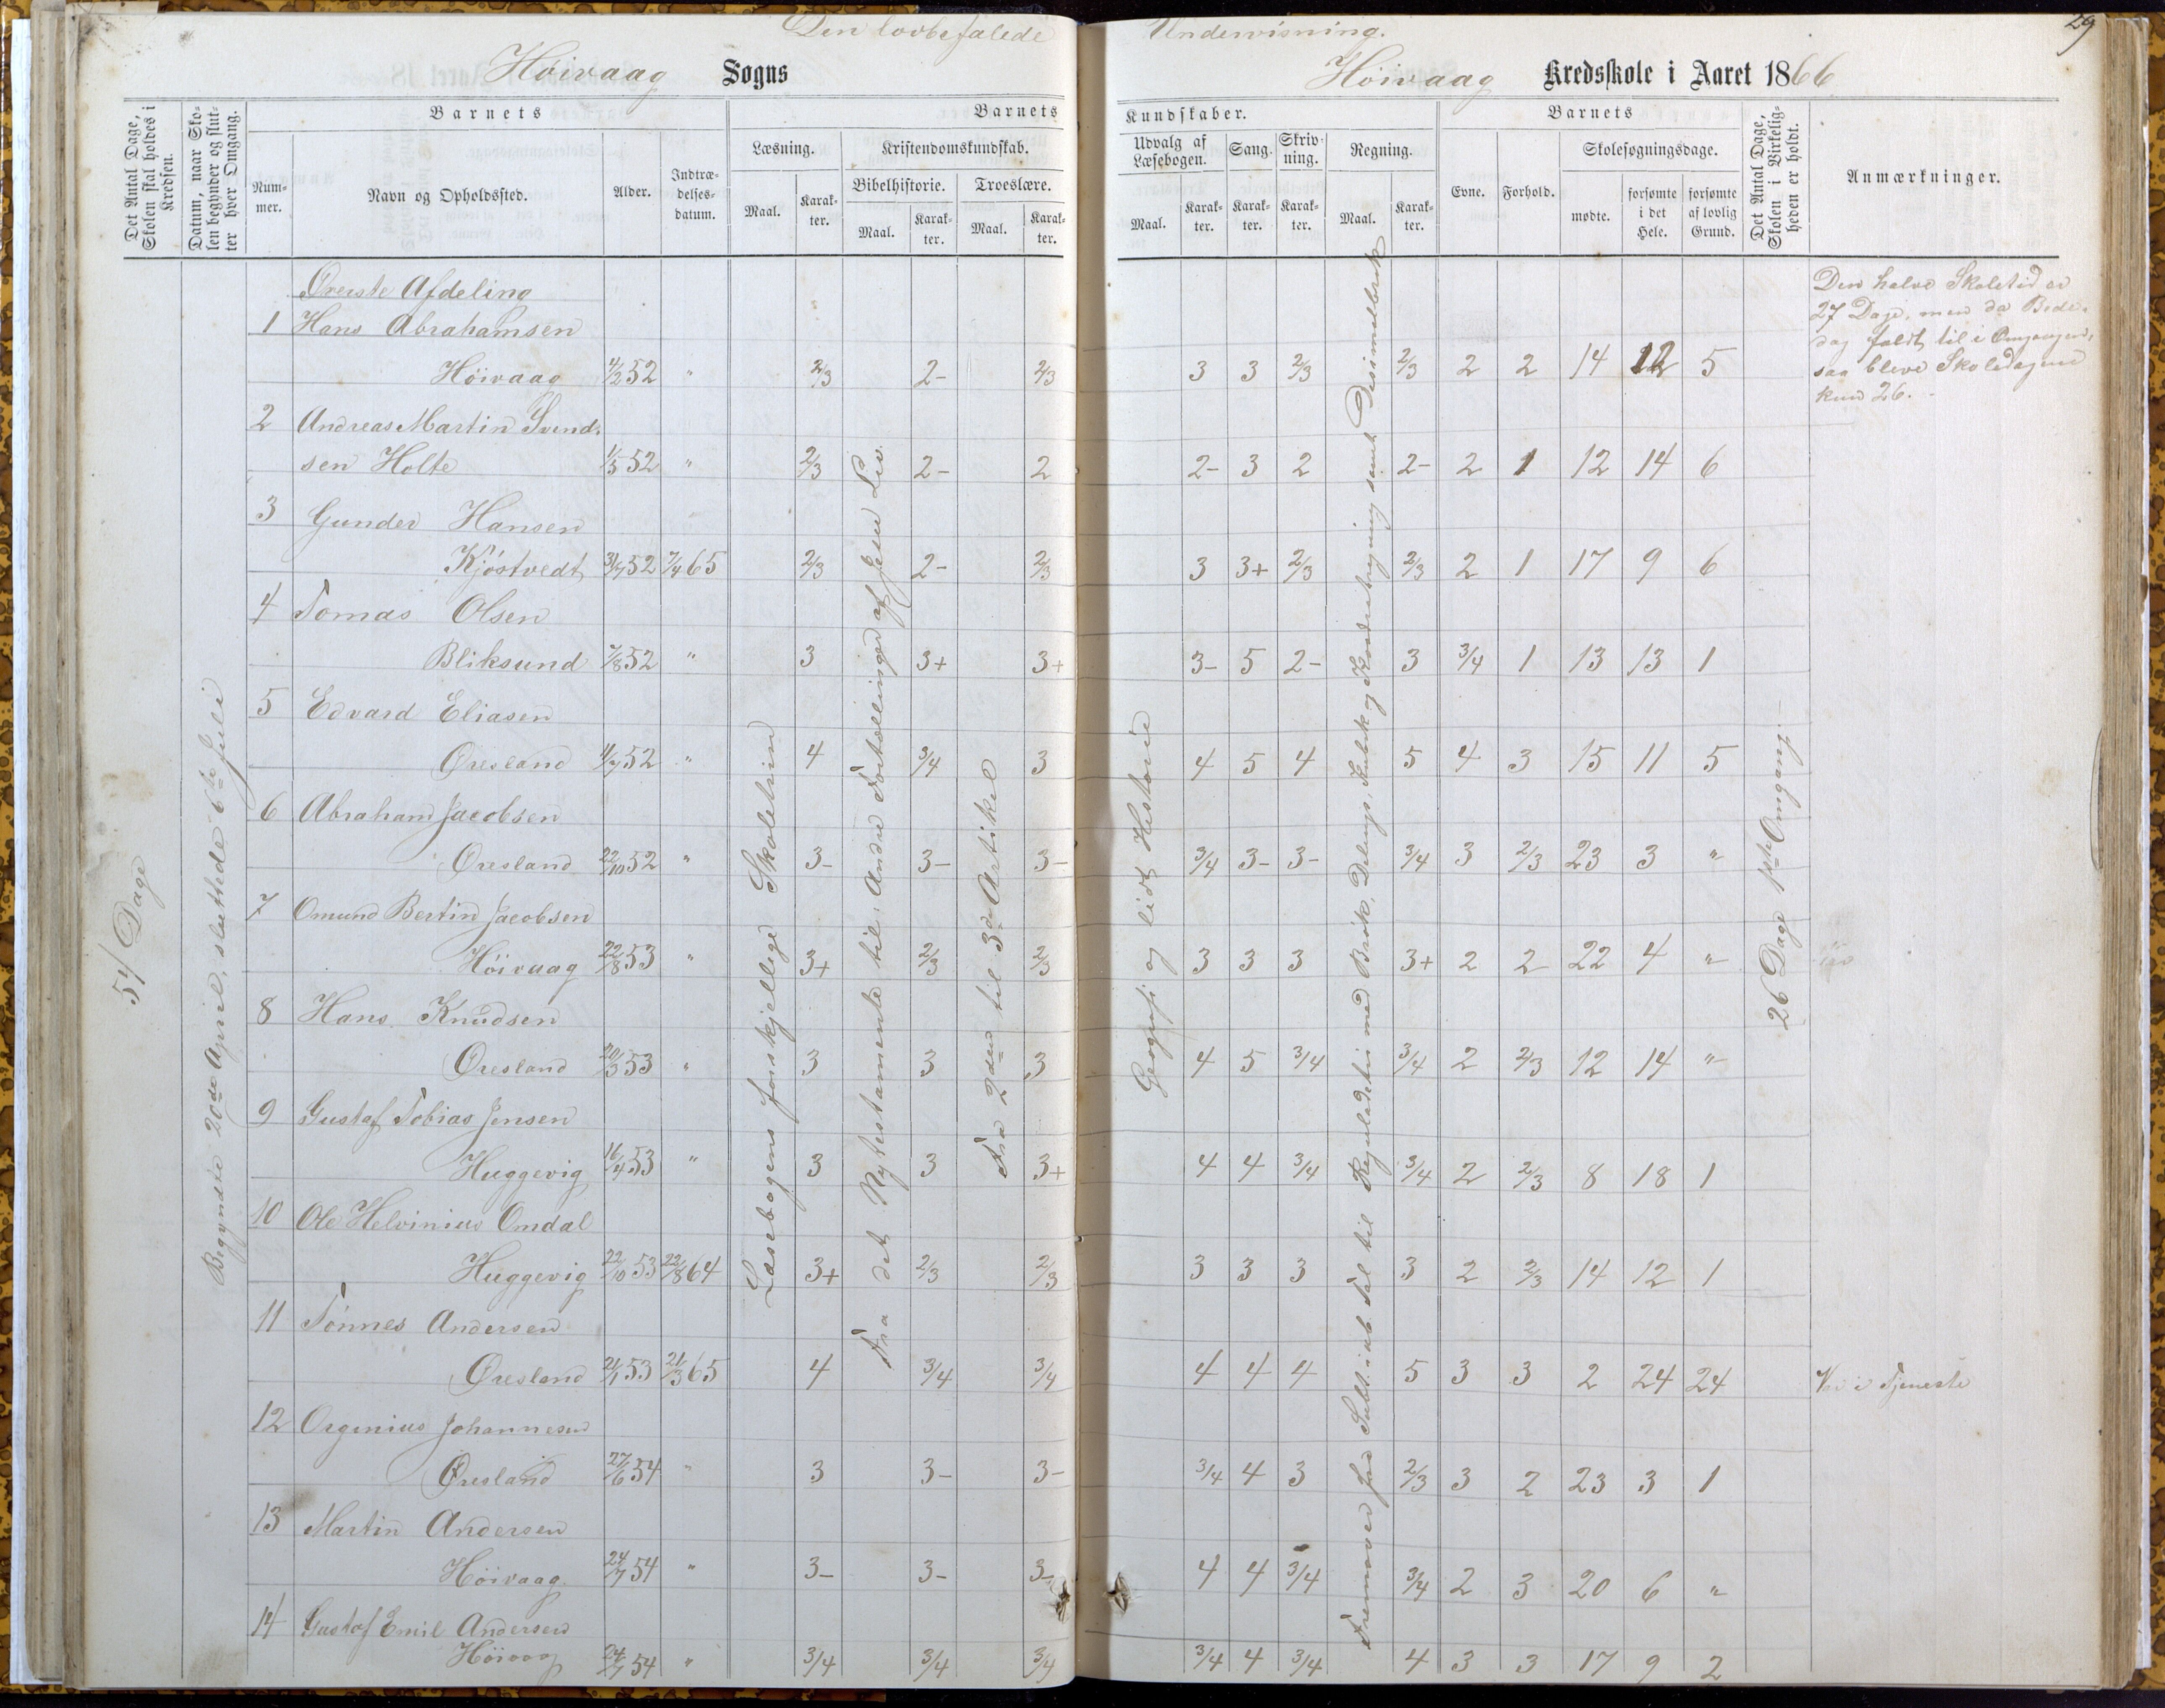 Den lovbefalede Undervisning.
29
Høivaag Sogns Høivaag Kredsskole i Aaret 1866
Det Antal Dage, Skolen skal holdes i Kredsen.
Datum, naar Skolen begynder og slutter hver Omgang.
Barnets
Nummer.
Navn og Opholdssted.
Alder.
Indtrædelsesdatum.
Barnets Kundskaber.
Læsning.
Maal.
Karakter.
Kristendomskundskab.
Bibelhistorie.
Maal.
Karakter.
Troeslære.
Maal.
Karakter.
Udvalg af Læsebogen.
Maal.
Karakter.
Sang.
Karakter.
Skrivning.
Karakter.
Regning.
Maal.
Karakter.
Barnets
Evne.
Forhold.
Skolesøgningsdage.
mødte.
forsømte i det Hele.
forsømte af lovlig Grund.
Det Antal Dage, Skolen i Virkeligheden er holdt.
Anmærkninger.
54 Dage
Begyndte 20de April, sluttede 6te Juli
Læsebogens forskjellige Skoletrin
Fra det Nytestamente til Andre Fortællinger af Jesu Liv
Fra 2den til 3de Artikel
Geografi og lidt Historie
26 Dage 1ste Omgang.
Den halve Skoletid er
27 Dage, men da Bede-
dag faldt til i Omgangen,
saa bleve Skoledagene
kun 26.
Øverste Afdeling
1 Hans Abrahamsen
Høivaag 4/2 52 " 2/3 2- 2/3 3 3 2/3 2/3 2 2 14 12 5
2 Andreas Martin Svend-
sen Holte 1/5 52 " 2/3 2- 2 2- 3 2 2- 2 1 12 14 6
3 Gunder Hansen
Kjøstvedt 31/7 52 7/4 65 2/3 2- 2/3 3 3+ 2/3 2/3 2 1 17 9 6
4 Tomas Olsen
Bliksund 7/8 52 " 3 3+ 3+ 3- 5 2- 3 3/4 1 13 13 1
5 Edvard Eliasen
Øresland 4/7 52 " 4 3/4 3 4 5 4 5 4 3 15 11 5
6 Abraham Jacobsen
Øresland 22/10 52 " 3- 3- 3- 3/4 3- 3- 3/4 3 2/3 23 3 "
7 Omund Bertin Jacobsen
Høivaag 22/8 53 " 3+ 2/3 2/3 3 3 3 3+ 2 2 22 4 "
8 Hans Knudsen
Øresland 20/3 53 " 3 3 3 4 5 3/4 3/4 2 2/3 12 14 "
9 Gustaf Tobias Jensen
Huggevig 16/4 53 " 3 3 3+ 4 4 3/4 3/4 2 2/3 8 18 1
10 Ole Helvinius Omdal
Huggevig 22/10 53 22/8 64 3+ 2/3 2/3 3 3 3 3 2 2/3 14 12 1
11 Tönnes Andersen
Øresland 21/1 53 21/3 65 4 3/4 3/4 4 4 4 5 3 3 2 24 24 Var i Tjeneste
12 Orginius Johannesen
Øresland 27/6 54 " 3 3- 3- 3/4 4 3 2/3 3 2 23 3 1
13 Martin Andersen
Høivaag 24/7 54 " 3- 3- 3- 4 4 3/4 3/4 2 3 20 6 "
14 Gustaf Emil Andersen
Høivaag 24/7 54 " 3/4 3/4 3/4 3/4 4 3/4 4 3 3 17 9 2